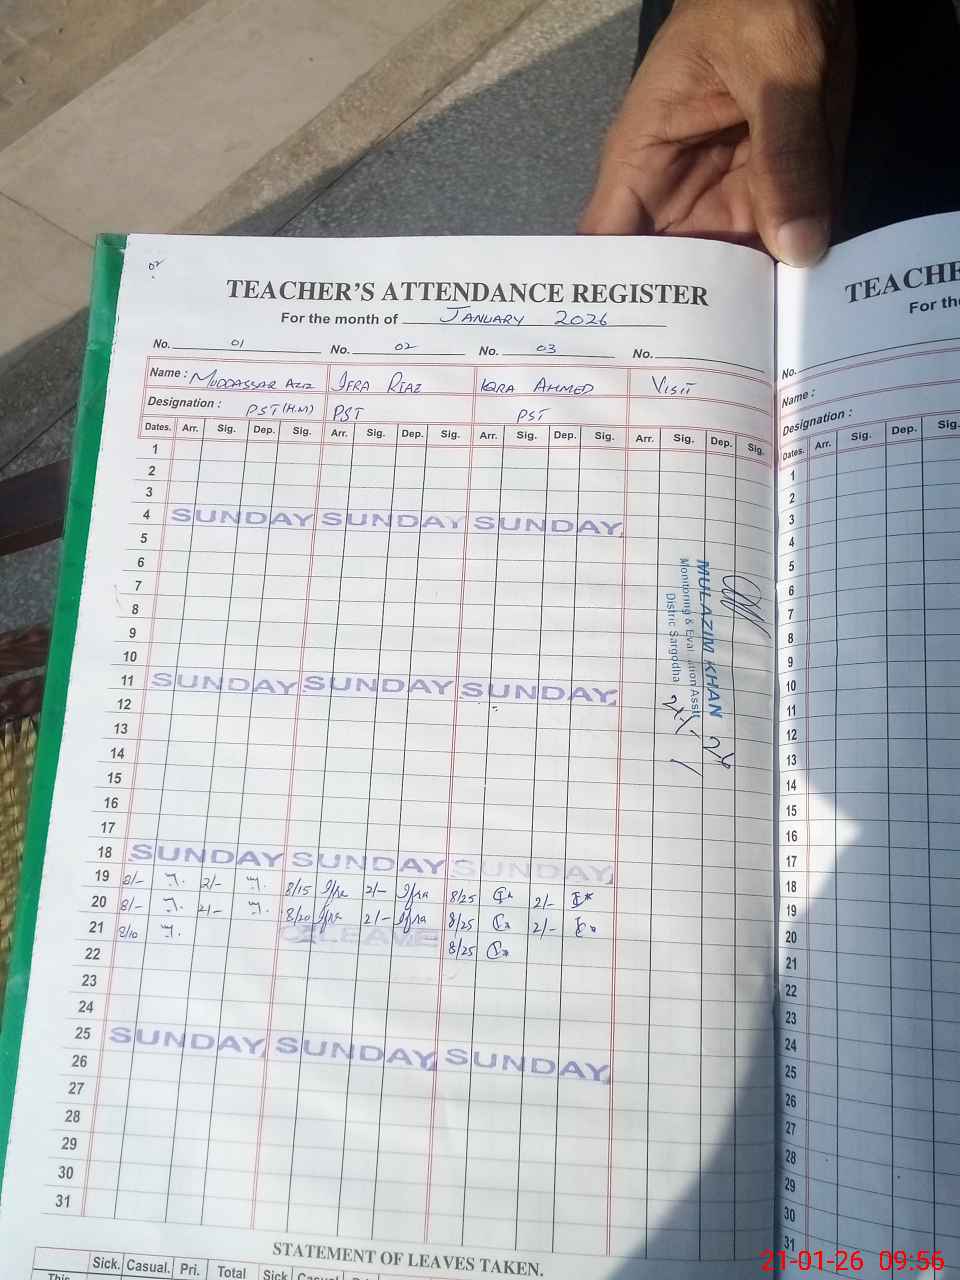 02
TEACHER'S ATTENDANCE REGISTER
For the month of JANUARY 2026
No. 01 No. 02 No. 03 No.
Name : MUDDASSAR AZIZ IFRA RIAZ IQRA AHMED VISIT
Designation : PST (H.M) PST PST
Dates. Arr. Sig. Dep. Sig. Arr. Sig. Dep. Sig. Arr. Sig. Dep. Sig. Arr. Sig. Dep. Sig.
1
2
3
4 SUNDAY SUNDAY SUNDAY
5
6
7
8
9
10
11 SUNDAY SUNDAY SUNDAY
12
13
14
15
16
17
18 SUNDAY SUNDAY SUNDAY
19 8/- 2/- 8/15 Ifra 2/- Ifra 8/25 2/-
20 8/- 2/- 8/20 Ifra 2/- Ifra 8/25 2/-
21 8/10 LEAVE 8/25
22
23
24
25 SUNDAY SUNDAY SUNDAY
26
27
28
29
30
31
MULAZIM KHAN
Monitoring & Eval..ation Asstt
Distric Sargodha
STATEMENT OF LEAVES TAKEN.
Sick. Casual. Pri. Total Sick
This
TEACHE
For the
No.
Name :
Designation :
Dates. Arr. Sig. Dep. Sig.
1
2
3
4
5
6
7
8
9
10
11
12
13
14
15
16
17
18
19
20
21
22
23
24
25
26
27
28
29
30
31
21-01-26 09:56